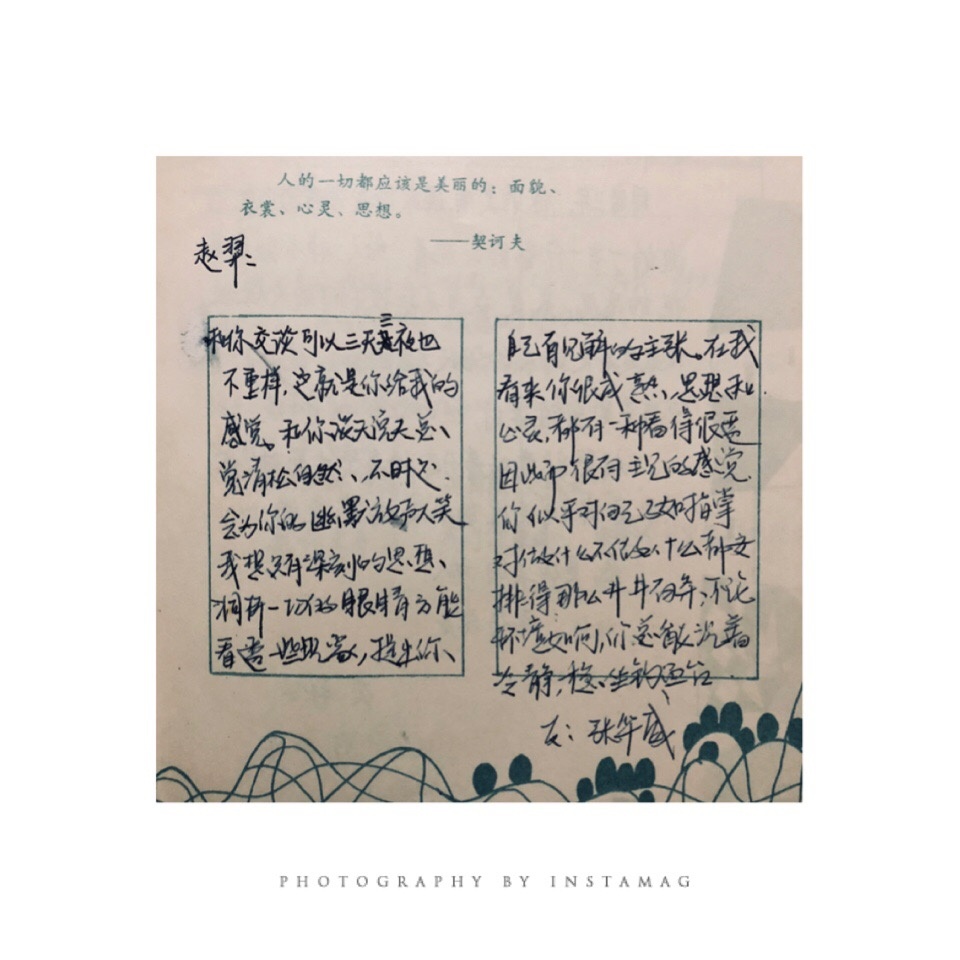 人的一切都应该是美丽的：面貌、
衣裳、心灵、思想。
——契诃夫
赵翠：
和你交谈可以三天三夜也
不重样，这就是你给我的
感觉。和你谈天说天总
觉清松自然、不时
会为你的幽默放声大笑
我想只有深刻的思想、
洞析一切的眼睛方能
看透一些现象，提出你
自己有见解的主张。在我
看来你很成熟、思想和
心灵，都有一种看得很透
因此而很有主见的感觉
你似乎对自己了如指掌
对做什么不做什么都安
排得那么井井有条；不论
环境如何，你总能沉着
冷静，稳坐钓鱼台.
友：张华盛
PHOTOGRAPHY BY INSTAMAG